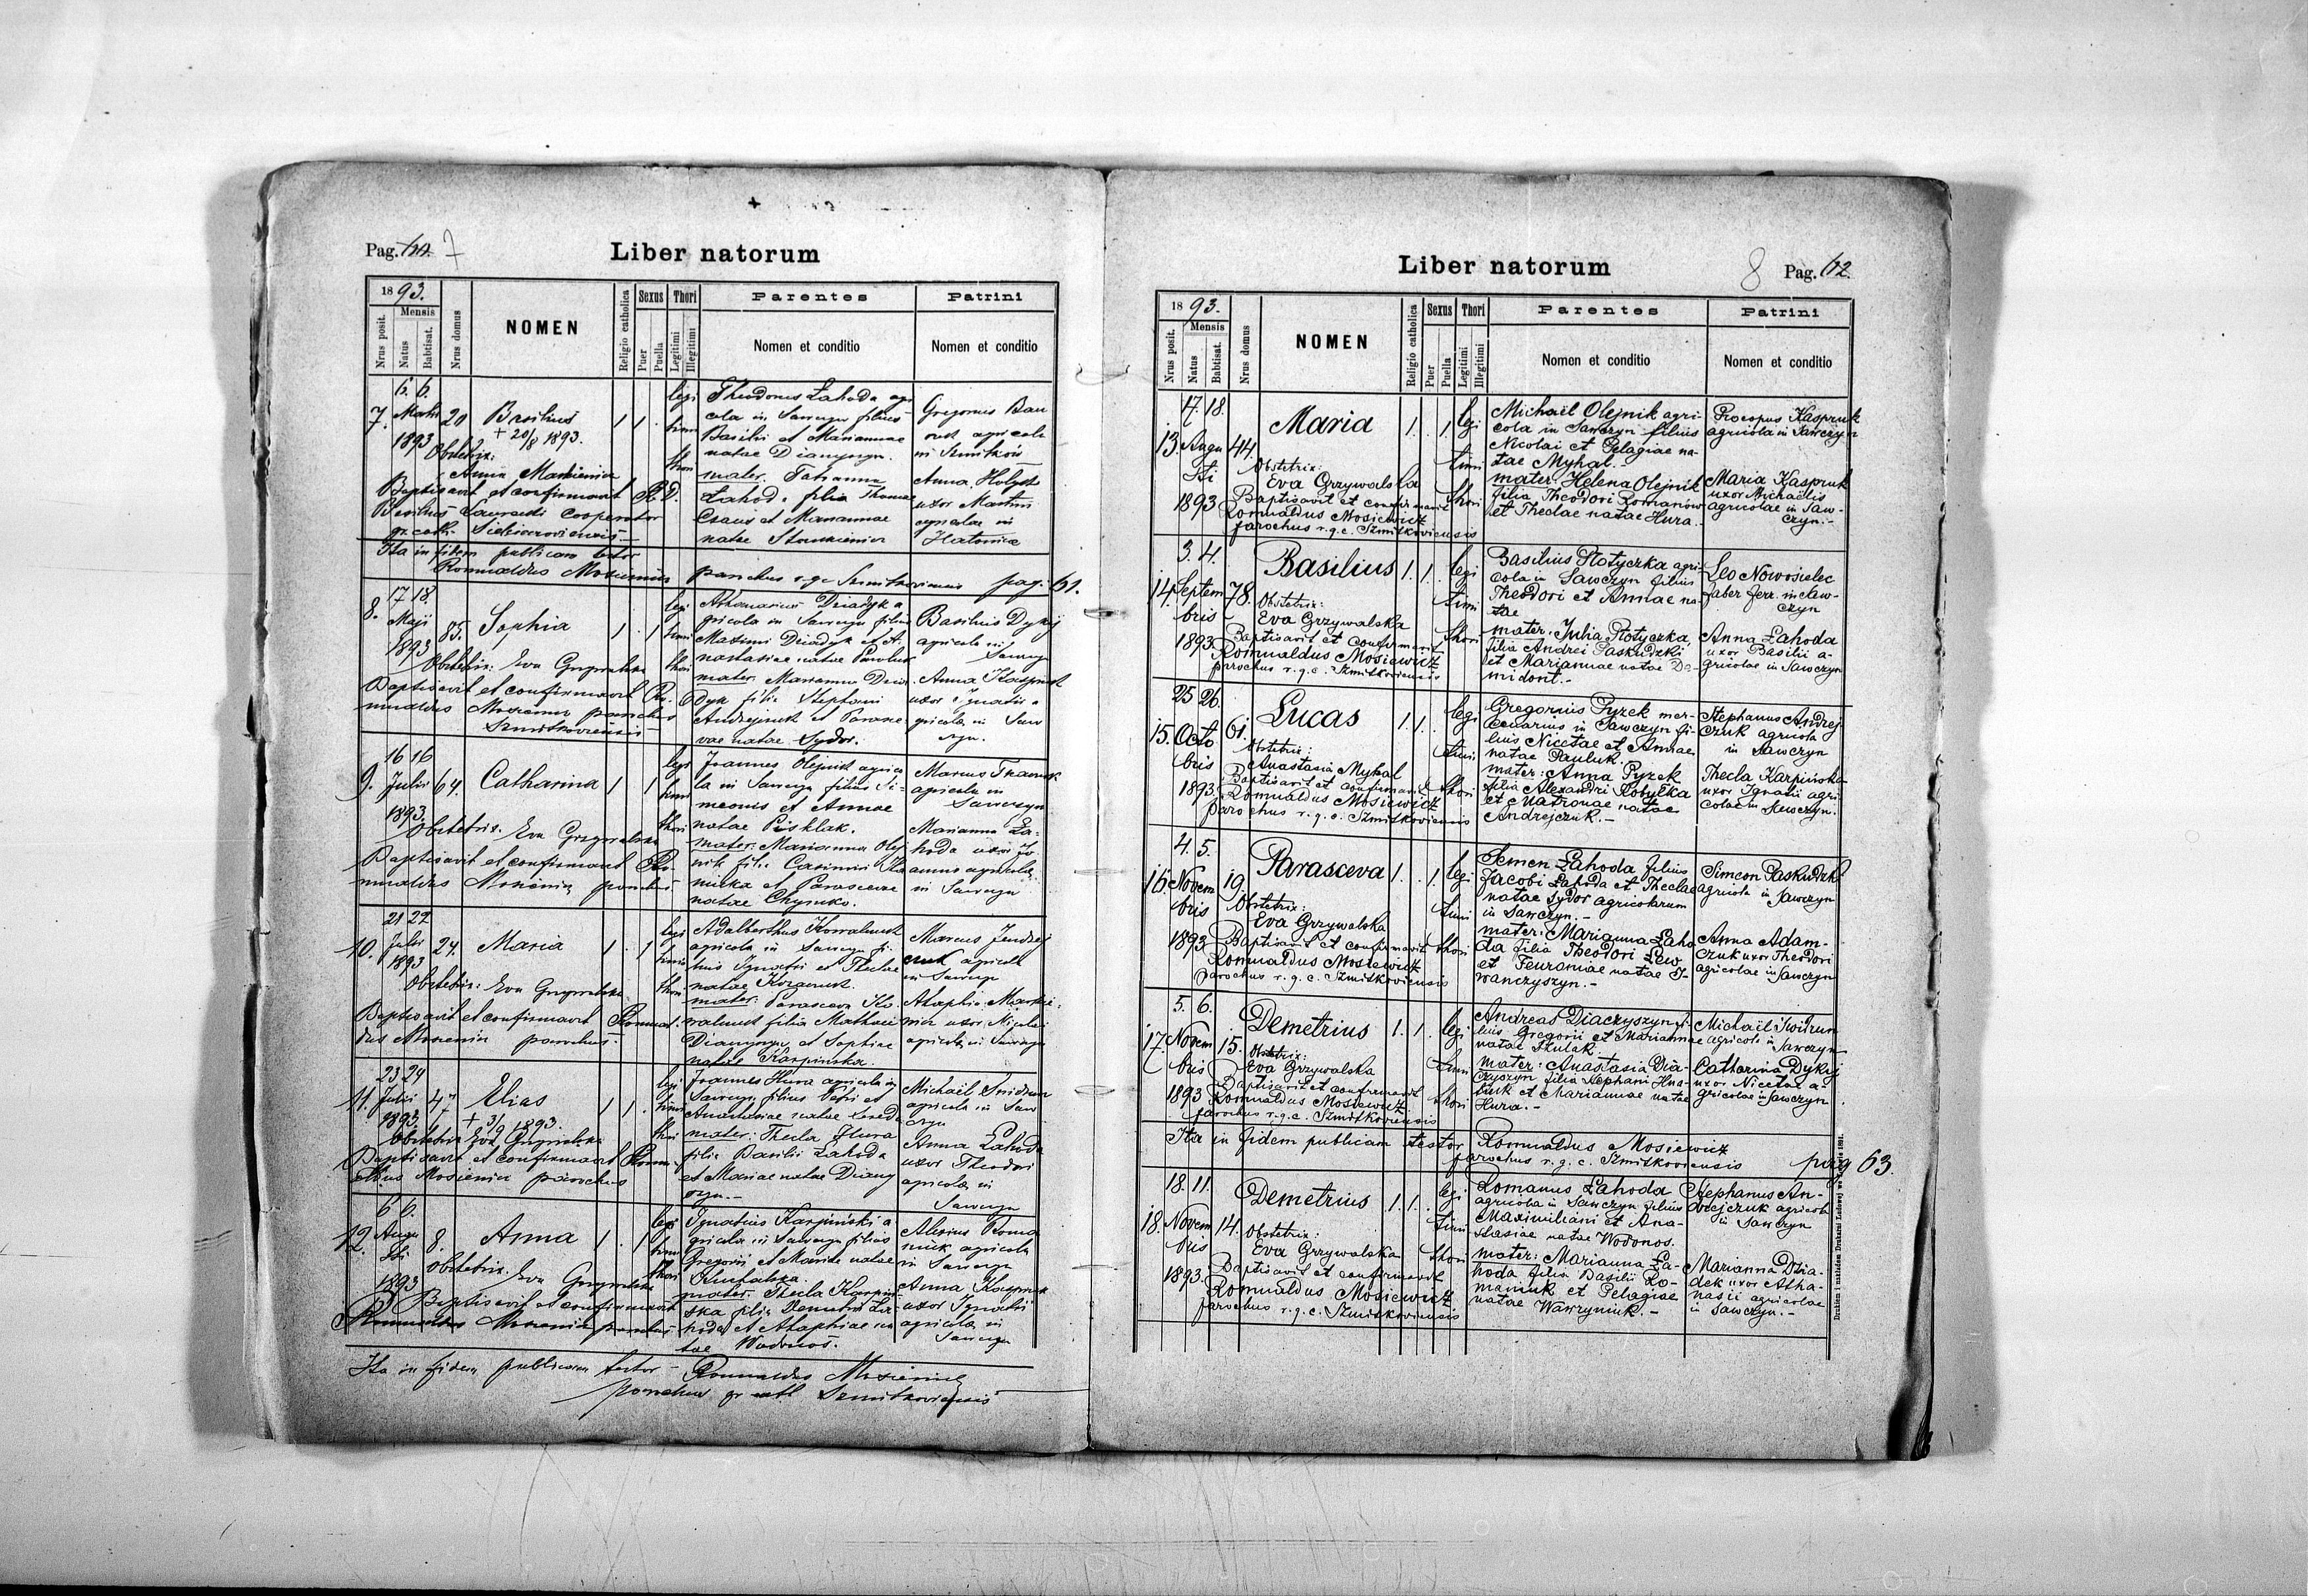 Pag. 7
Liber natorum
1893.
Nrus posit.
Mensis
Natus
Babtisat.
Nrus domus
NOMEN
Religio catholica
Sexus
Puer
Puella
Thori
Legitimi
Illegitimi
Parentes
Nomen et conditio
Patrini
Nomen et conditio
7.
6. 6.
1893
20
Basilius
+ 20/8 1893.
Obstetrix:
Anna
Baptisavit et confirmavit R. D.
Basilius Cooperator
gr. cath.
1 1
legi
timi
thori
Theodorus Łahoda agri
cola in Sawczyn filius
Basilii et Mariannae
natae
mater: Tatianna
Łahoda filia Thomae
et Mariannae
natae
Gregorius
agricola
in Szmitków
Anna
uxor Martini
agricolae in
Ita in fidem publicam testor
Romualdus Mosiewicz parochus r. g. c. Szmitkoviensis pag. 61.
8.
17 18.
Maji
1893
85.
Sophia
Obstetrix: Eva Grzywalska
Baptisavit et confirmavit Ro-
mualdus Mosiewicz parochus
Szmitkoviensis
1 1
legi
timi
thori
Athanasius Dziadyk a
gricola in Sawczyn filius
Maximi Dziadyk et A-
nastasiae natae
mater: Marianna Dzia
dyk filia Stephani
Andrejczuk et Parasce
vae natae Sydor.
Basilius Dykyj
agricola in
Sawczyn
Anna Kaspruk
uxor Ignatii a
gricolae in Saw
czyn.
9.
16 16
Julii
1893.
64.
Catharina
Obstetrix: Eva Grzywalska
Baptisavit et confirmavit Ro-
mualdus Mosiewicz parochus
1 1
legi
timi
thori
Joannes Olejnik agrico
la in Sawczyn filius Si-
meonis et Annae
natae
mater: Marianna Olej
nik filia Casimiri
et Parascevae
natae
Marcus
agricola in
Sawczyn
Marianna Ła-
hoda uxor Jo
annis agricolae
in Sawczyn
10.
21 22
Julii
1893
24.
Maria
Obstetrix: Eva Grzywalska
Baptisavit et confirmavit Romual.
dus Mosiewicz parochus.
1 1
legi
timi
thori
Adalberthus Kowalczuk
agricola in Sawczyn fi-
lius Ignatii et Theclae
natae
mater: Parasceva Ko
walczuk filia Mathaei
et Sophiae
natae Karpinska
Marcus Jendrej
czuk agricola
in Sawczyn
Ahaphia
uxor Nicolai
agricolae in Sawczyn
11.
23 24
Julii
1893.
47
Elias
+ 3/9 1893.
Obstetrix Eva Grzywalska
Baptisavit et confirmavit Romu-
aldus Mosiewicz parochus
1 1
legi
timi
thori
Joannes Hura agricola in
Sawczyn filius Petri et
Anastasiae natae
mater: Thecla Hura
filia Basilii Łahoda
et Mariae natae
Michaël
agricola in Saw
czyn
Anna Łahoda
uxor Theodori
agricolae in
Sawczyn
12.
6 6.
Augu
sti
1893
8.
Anna
Obstetrix: Eva Grzywalska
Baptisavit et confirmavit
Romualdus Mosiewicz parochus
1 1
legi
timi
thori
Ignatius Karpiński a
gricola in Sawczyn filius
Gregorii et Mariae natae
mater: Thecla Karpin
ska filia Demetrii Ła
hoda et Ahaphiae na
tae Wodonos.
Alexius Roma
niuk agricola
in Sawczyn
Anna Kaspruk
uxor Ignatii
agricolae in
Sawczyn
Ita in fidem publicam testor – Romualdus Mosiewicz
parochus gr. cath. Szmitkoviensis
8 Pag. 62.
Liber natorum
1893.
Nrus posit.
Mensis
Natus
Babtisat.
Nrus domus
NOMEN
Religio catholica
Sexus
Puer
Puella
Thori
Legitimi
Illegitimi
Parentes
Nomen et conditio
Patrini
Nomen et conditio
13.
17. 18.
Augu
sti
1893
44.
Maria
Obstetrix:
Eva Grzywalska
Baptisavit et confirmavit
Romualdus Mosiewicz
parochus r. g. c. Szmitkoviensis
1. 1.
legi
timi
thori
Michaël Olejnik agri-
cola in Sawczyn filius
Nicolai et Pelagiae na-
tae Myhal.-
mater: Helena Olejnik
filia Theodori Romanow
et Theclae natae Hura.
Procopus Kaspruk
agricola in Sawczyn
Maria Kaspruk
uxor Michaëlis
agricolae in Saw-
czyn.-
14.
3. 4.
Septem
bris
1893
78.
Basilius
Obstetrix:
Eva Grzywalska
Baptisavit et confirmavit
Romualdus Mosiewicz
parochus r. g. c. Szmitkoviensis
1. 1.
legi
timi
thori
Basilius Płotyczka agri-
cola in Sawczyn filius
Theodori et Annae na-
tae
mater: Julia Płotyczka
filia Andrei Paskudzki
et Mariannae natae De-
midont.-
Leo Nowosielec
faber ferr. in Saw-
czyn
Anna Łahoda
uxor Basilii a-
gricolae in Sawczyn
15.
25 26.
Octo
bris
1893.
61.
Lucas
Obstetrix:
Anastasia Myhal
Baptisavit et confirmavit
Romualdus Mosiewicz
parochus r. g. c. Szmitkoviensis
1. 1.
legi
timi
thori
Gregorius Pyzek mer-
cenarius in Sawczyn fi-
lius Nicetae et Annae
natae Pauluk.
mater: Anna Pyzek
filia Alexandri Kobyłka
et Matronae natae
Andrejczuk.-
Stephanus Andrej
czuk agricola
in Sawczyn
Thecla Karpińska
uxor Ignatii agri
colae in Sawczyn.
16.
4. 5.
Novem
bris
1893
19.
Parasceva
Obstetrix:
Eva Grzywalska
Baptisavit et confirmavit
Romualdus Mosiewicz
parochus r. g. c. Szmitkoviensis
1. 1.
legi
timi
thori
Semen Łahoda filius
Jacobi Łahoda et Theclae
natae Sydor agricolarum
in Sawczyn.-
mater: Marianna Łaho
da filia Theodori Lew
et Feuroniae natae I-
wanczyszyn.-
Simeon Paskudzki
agricola in Sawczyn
Anna Adam-
czuk uxor Theodori
agricolae in Sawczyn
17.
5. 6.
Novem
bris
1893
15.
Demetrius
Obstetrix:
Eva Grzywalska
Baptisavit et confirmavit
Romualdus Mosiewicz
parochus r. g. c. Szmitkoviensis
1. 1.
legi
timi
thori
Andreas Diaczyszyn fi-
lius Gregorii et Mariannae
natae Skulak
mater: Anastasia Dia-
czyszyn filia Stephani Hna-
tiuk et Mariannae natae
Hura.-
Michaël Swidrun
agricola in Sawczyn
Catharina Dykyj
uxor Nicetae a-
gricolae in Sawczyn
Ita in fidem publicam testor Romualdus Mosiewicz
parochus r. g. c. Szmitkoviensis pag 63.
18.
18. 11.
Novem
bris
1893.
14.
Demetrius
Obstetrix:
Eva Grzywalska
Baptisavit et confirmavit
Romualdus Mosiewicz
parochus r. g. c. Szmitkoviensis
1. 1.
legi
timi
thori
Romanus Łahoda
agricola in Sawczyn filius
Maximiliani et Ana-
stasiae natae Wodonos.
mater: Marianna Ła-
hoda filia Basilii Ro-
maniuk et Pelagiae
natae Wawryniuk.-
Stephanus An-
drejczuk agricola
in Sawczyn
Marianna Dzia-
dek uxor Atha-
nasii agricolae
in Sawczyn.-
Drukiem i nakładem Drukarni Ludowej we Lwowie 1891.